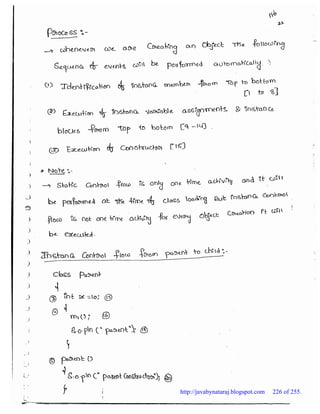 Process :-
→ whenever we are creating an object The following
Sequence of events will be performed automatically
(1) Identification of instance member from Top to bottom
[1 to 8]
(2) Execution of instance variable assignments & instance
blocks from top to bottom [9-14].
(3) Execution of Constructor [15]
* Note :-
→ Static Control flow is only one time activity and it will
be performed at the time of class loading But instance control
flow is not one time activity for every object Creation it will
be executed.
Instance Control flow from parent to child :-
class Parent
{
int x=10;
{
m1();
S.o.pln ("parent");
}
parent ()
{
S.o.pln (" parent Constructor");
}
http://javabynataraj.blogspot.com 226 of 255.